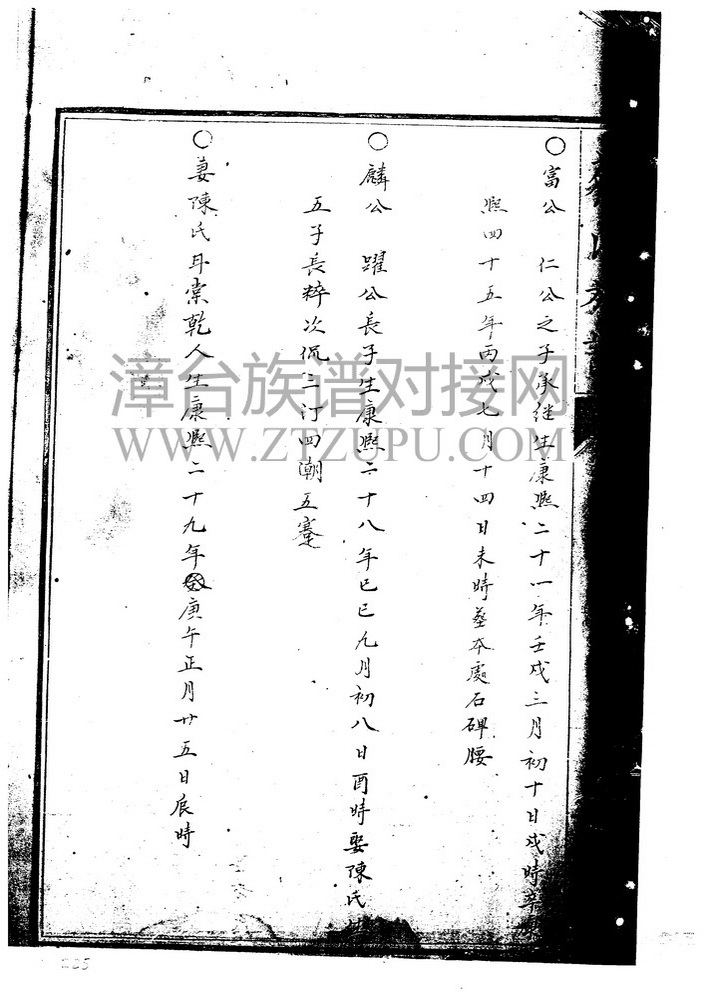 ○富公 仁公之子承继生康熙二十一年壬戌三月初十日戌時卒康
熙四十五年丙戌七月十四日未時葬本處石碑腰
○麟公 躍公長子生康熙二十八年己巳九月初八日酉時娶陳氏
五子長粹次侃三汀四潮五蹇
○妻陳氏 乾人生康熙二十九年庚午正月廿五日辰時
漳台族谱对接网
WWW.ZTZUPU.COM
235